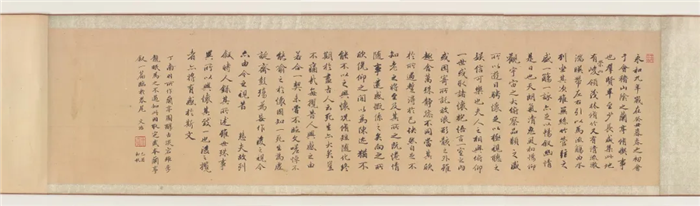 永和九年歲在癸丑暮春之初會
于會稽山陰之蘭亭脩禊事
也羣賢畢至少長咸集此地
有崇山峻領茂林脩竹又有清流激
湍暎帶左右引以為流觴曲水
列坐其次雖無絲竹管弦之
盛一觴一詠亦足以暢敘幽情
是日也天朗氣清惠風和暢仰
觀宇宙之大俯察品類之盛
所以遊目騁懷足以極視聽之
娛信可樂也夫人之相與俯仰
一世或取諸懷抱悟言一室之內
或因寄所託放浪形骸之外雖
趣舍萬殊靜躁不同當其欣
於所遇暫得於己快然自足不
知老之將至及其所之既倦情
隨事遷感慨係之矣向之所
欣俛仰之閒以為陳迹猶不
能不以之興懷況脩短隨化終
期於盡古人云死生亦大矣豈
不痛哉每攬昔人興感之由
若合一契未嘗不臨文嗟悼不
能喻之於懷固知一死生為虛
誕齊彭殤為妄作後之視今
亦由今之視昔悲夫故列
敘時人錄其所述雖世殊事
異所以興懷其致一也後之攬
者亦將有感於斯文